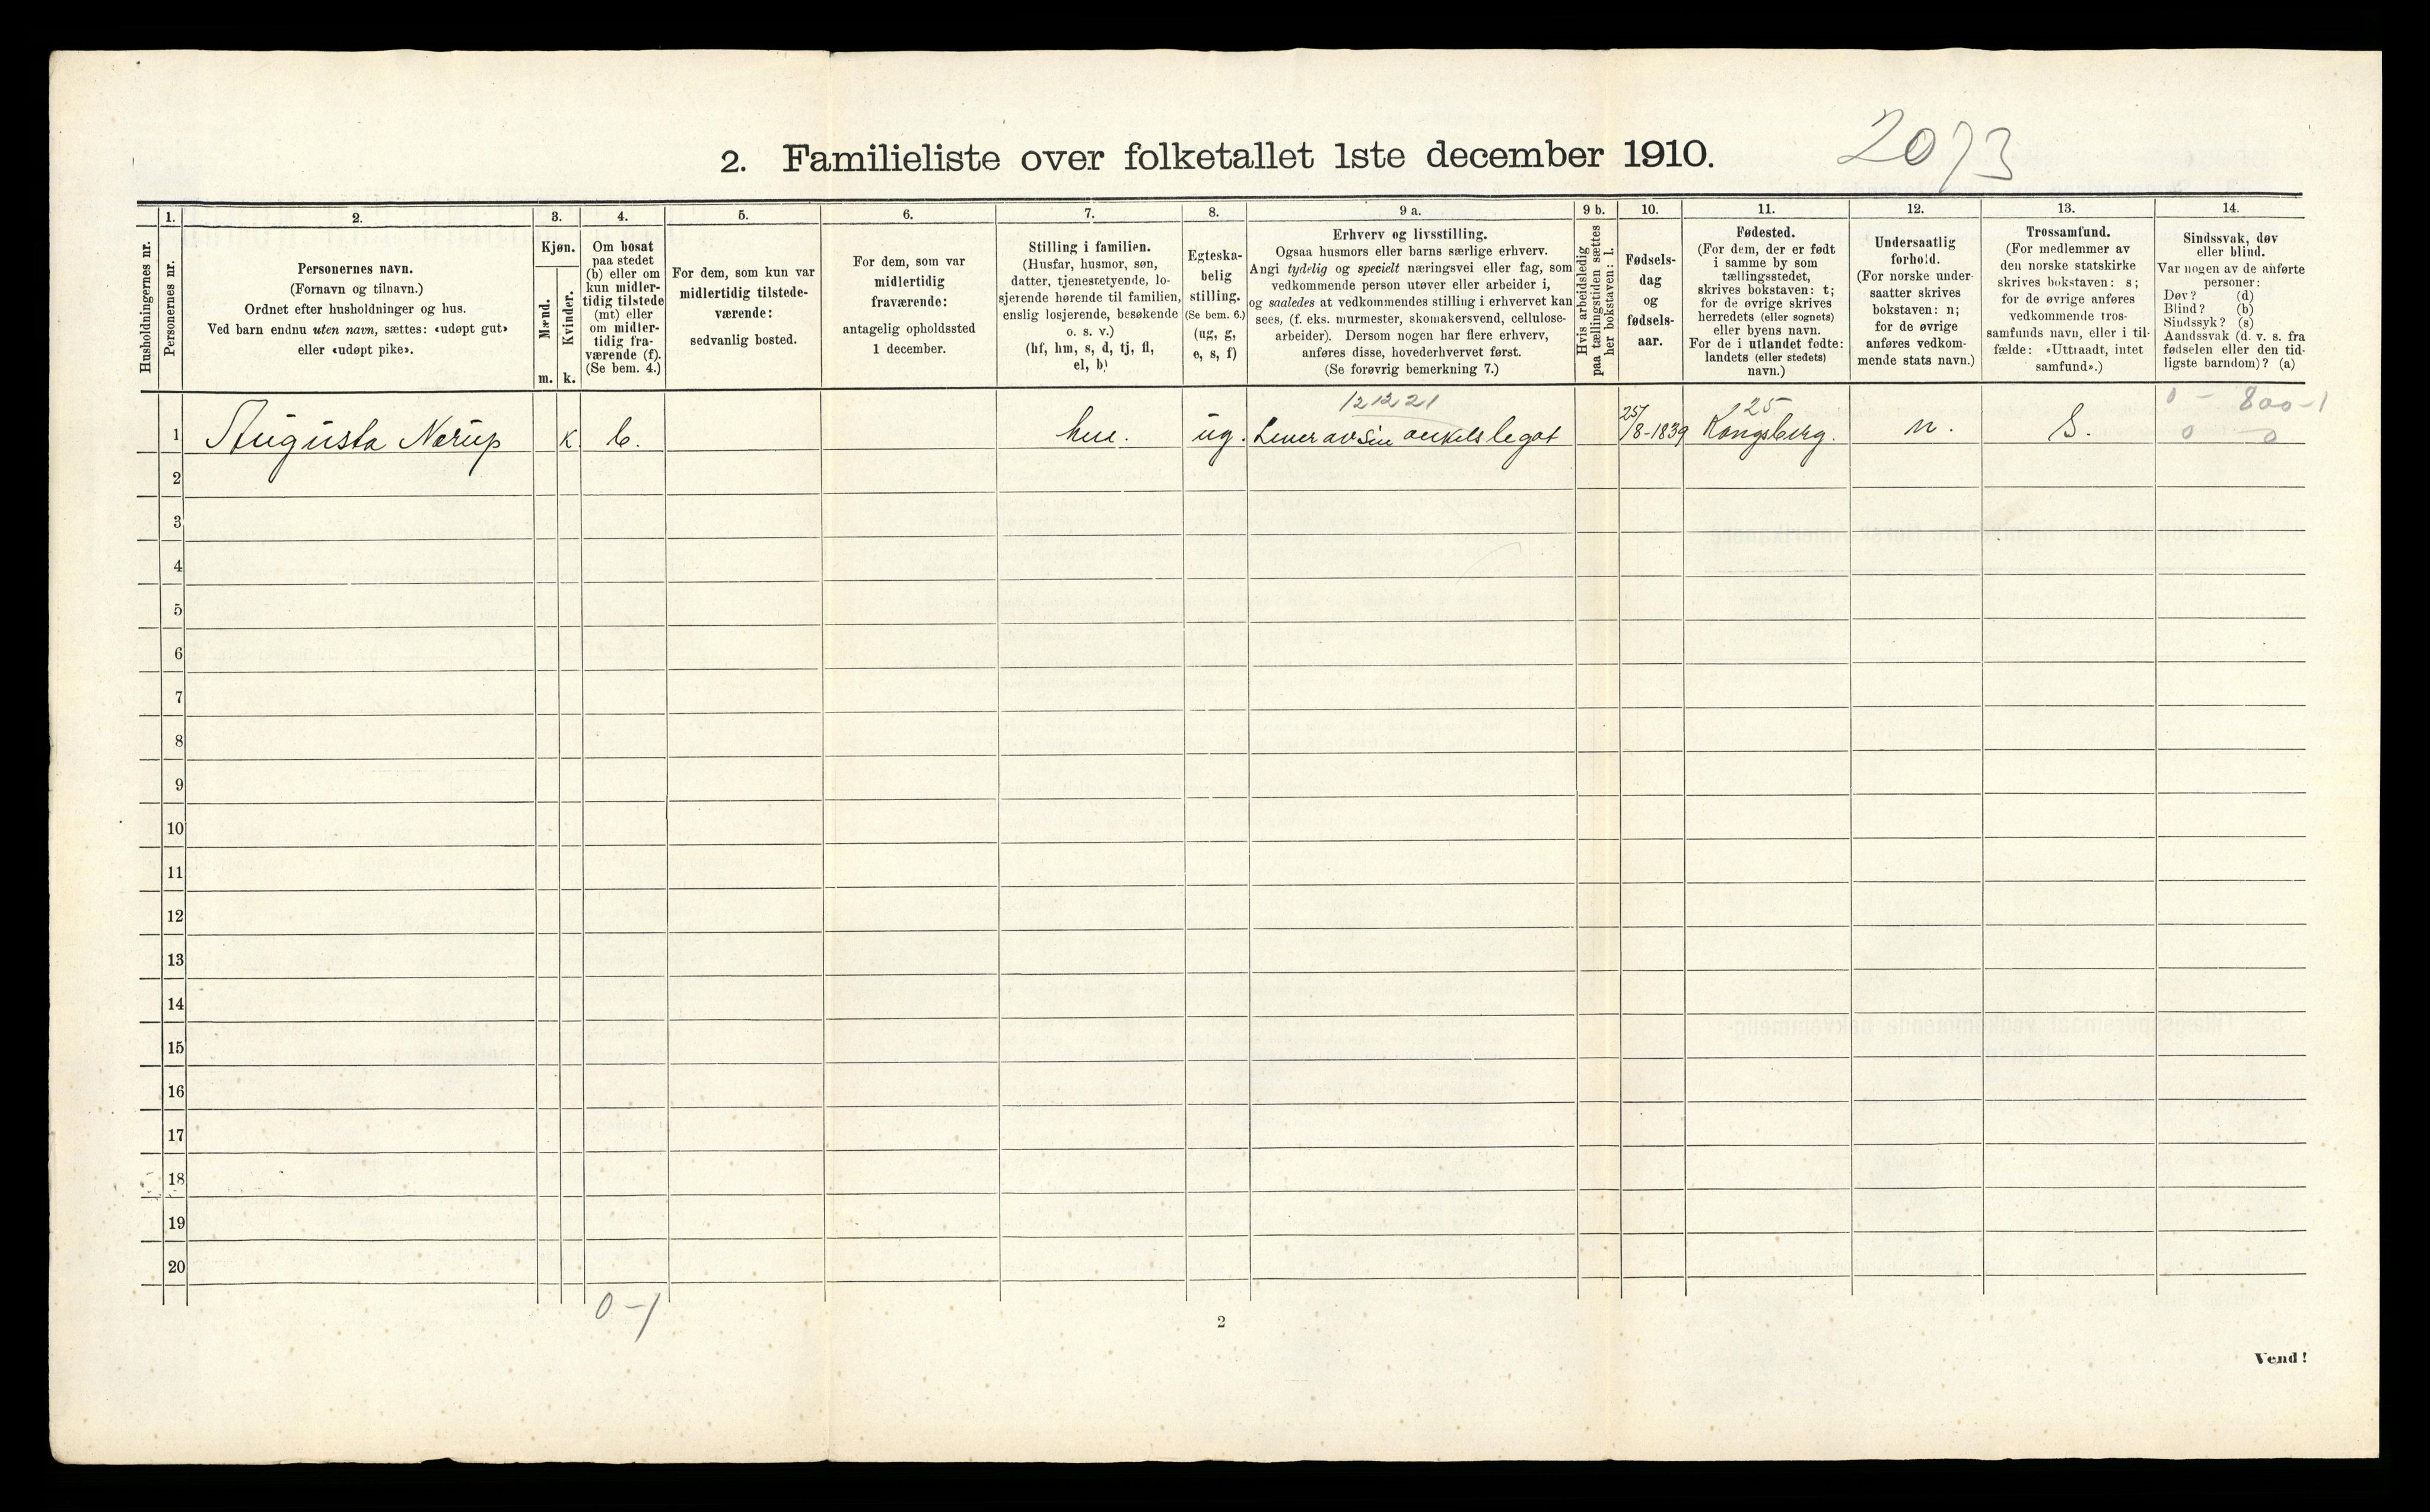 2. Familieliste over folketallet 1ste december 1910.
2073
1. 2. 3. 4. 5. 6. 7. 8. 9 a. 9 b. 10. 11. 12. 13. 14.
Husholdningernes nr.
Personernes nr.
Personernes navn.
(Fornavn og tilnavn.)
Ordnet efter husholdninger og hus.
Ved barn endnu uten navn, sættes: «udøpt gut»
eller «udøpt pike».
Kjøn.
Mænd.
Kvinder.
m. k.
Om bosat
paa stedet
(b) eller om
kun midler-
tidig tilstede
(mt) eller
om midler-
tidig fra-
værende (f).
(Se bem. 4.)
For dem, som kun var
midlertidig tilstede-
værende:
sedvanlig bosted.
For dem, som var
midlertidig
fraværende:
antagelig opholdssted
1 december.
Stilling i familien.
(Husfar, husmor, søn,
datter, tjenestetyende, lo-
sjerende hørende til familien,
enslig losjerende, besøkende
o. s. v.)
(hf, hm, s, d, tj, fl,
el, b)
Egteska-
belig
stilling.
(Se bem. 6.)
(ug, g,
e, s, f)
Erhverv og livsstilling.
Ogsaa husmors eller barns særlige erhverv.
Angi tydelig og specielt næringsvei eller fag, som
vedkommende person utøver eller arbeider i,
og saaledes at vedkommendes stilling i erhvervet kan
sees, (f. eks. murmester, skomakersvend, cellulose-
arbeider). Dersom nogen har flere erhverv,
anføres disse, hovederhvervet først.
(Se forøvrig bemerkning 7.)
Hvis arbeidsledig
paa tællingstiden sættes
her bokstaven: l.
Fødsels-
dag
og
fødsels-
aar.
Fødested.
(For dem, der er født
i samme by som
tællingsstedet,
skrives bokstaven: t;
for de øvrige skrives
herredets (eller sognets)
eller byens navn.
For de i utlandet fødte:
landets (eller stedets)
navn.)
Undersaatlig
forhold.
(For norske under-
saatter skrives
bokstaven: n;
for de øvrige
anføres vedkom-
mende stats navn.)
Trossamfund.
(For medlemmer av
den norske statskirke
skrives bokstaven: s;
for de øvrige anføres
vedkommende tros-
samfunds navn, eller i til-
fælde: «Uttraadt, intet
samfund».)
Sindssvak, døv
eller blind.
Var nogen av de anførte
personer:
Døv? (d)
Blind? (b)
Sindssyk? (s)
Aandssvak (d. v. s. fra
fødselen eller den tid-
ligste barndom)? (a)
12 12 21 125 0 - 800-1
1 Augusta Nørup k b. hm. ug. Lever av sin onkels legat 25/8-1839 Kongsberg. n. S. 0 - 0
2
3
4
5
6
7
8
9
10
11
12
13
14
15
16
17
18
19
20
0-1
2
Vend!